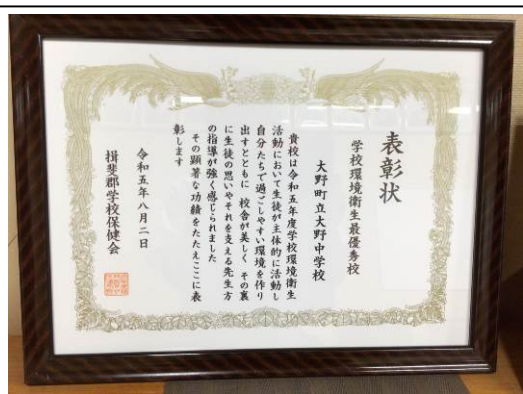 表彰状
学校環境衛生最優秀校
大野町立大野中学校
貴校は令和五年度学校環境衛生
活動において生徒が主体的に活動し
自分たちで過ごしやすい環境を作り
出すとともに 校舎が美しく その裏
に生徒の思いやそれを支える先生方
の指導が強く感じられました
その顕著な功績をたたえここに表
彰します
令和五年八月二日
揖斐郡学校保健会